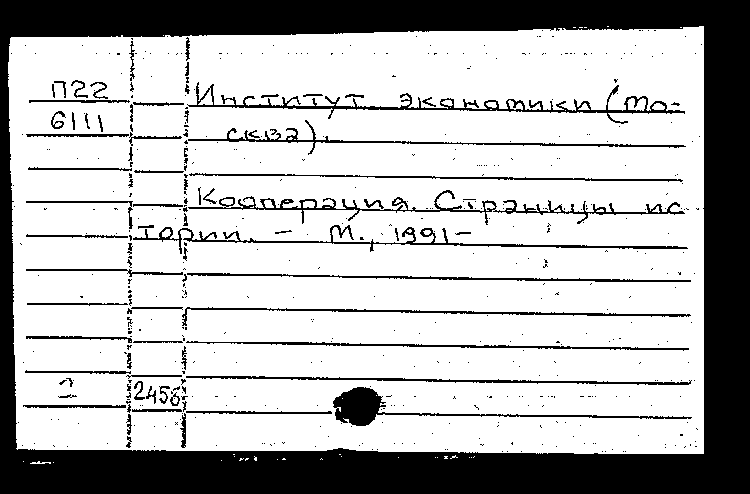 П22 Институт экономики (Мо-
6111 сква).
Кооперация. Страницы ис
тории. – М., 1991–
2456